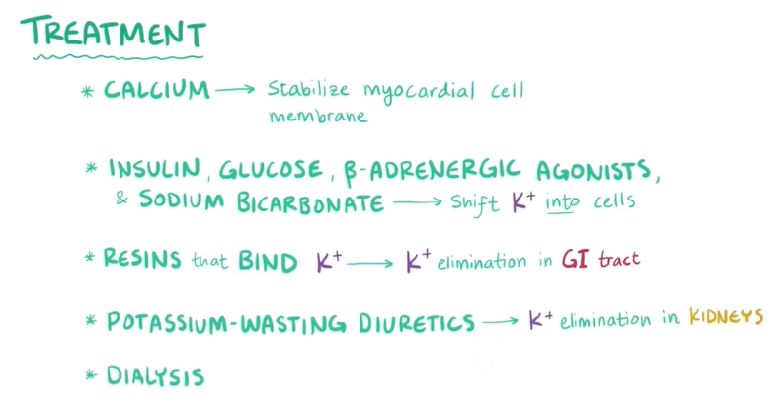 TREATMENT
* CALCIUM → Stabilize myocardial cell
membrane
* INSULIN, GLUCOSE, β-ADRENERGIC AGONISTS,
& SODIUM BICARBONATE → Shift K⁺ into cells
* RESINS that BIND K⁺ → K⁺ elimination in GI tract
* POTASSIUM-WASTING DIURETICS → K⁺ elimination in KIDNEYS
* DIALYSIS